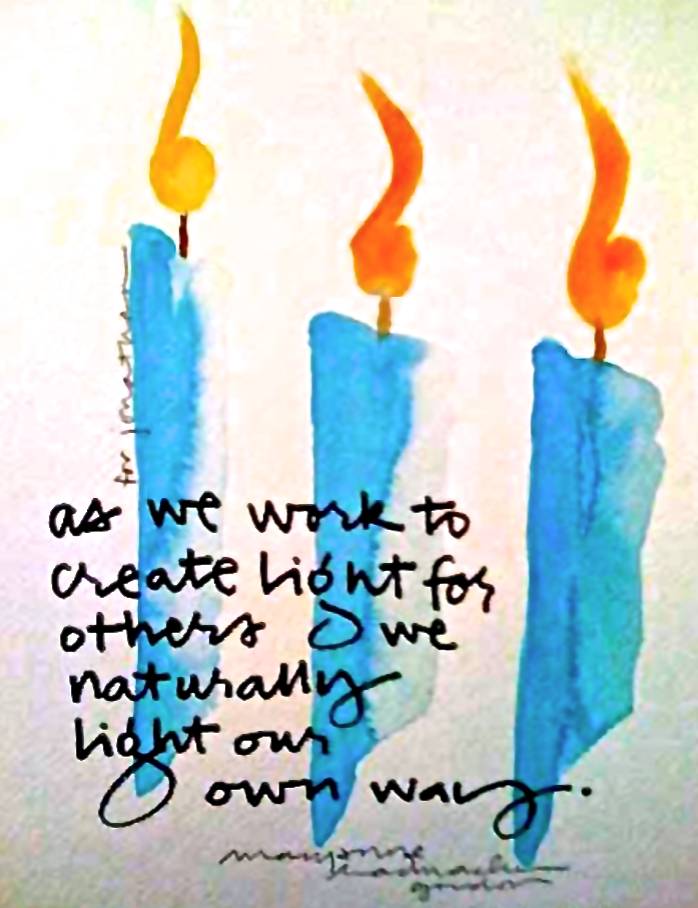 for jonathan
as we work to
create light for
others we
naturally
light our
own way.